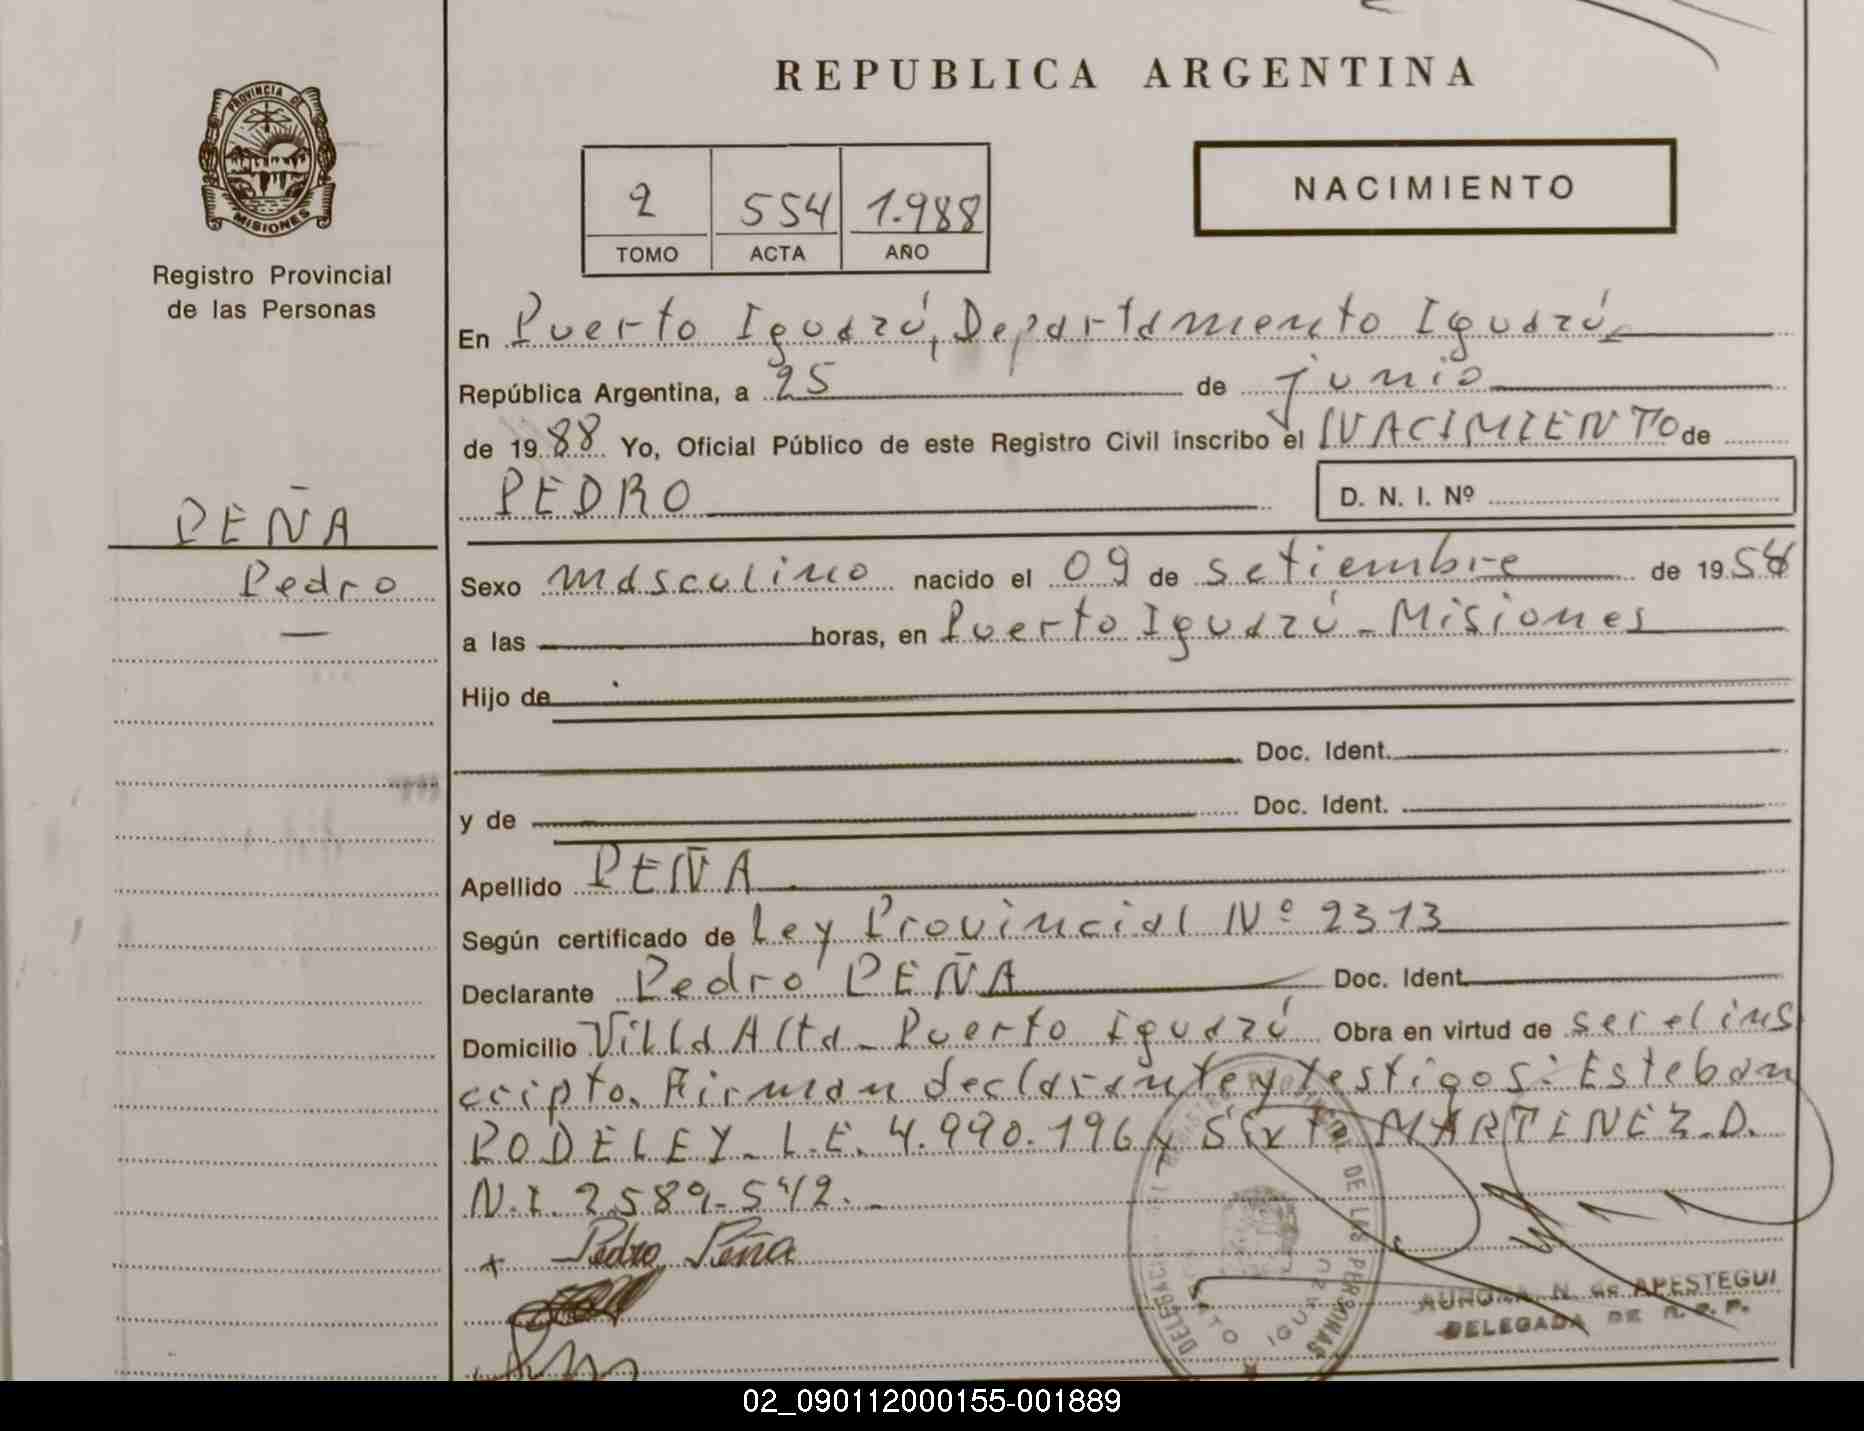 REPUBLICA ARGENTINA
PROVINCIA DE
MISIONES
Registro Provincial
de las Personas
2 554 1.988
TOMO ACTA AÑO
NACIMIENTO
En Puerto Iguazú, Departamento Iguazú
República Argentina, a 25 de junio
de 1988 Yo, Oficial Público de este Registro Civil inscribo el NACIMIENTO de
PEDRO D. N. I. Nº
PEÑA
Pedro
Sexo masculino nacido el 09 de setiembre de 1958
a las horas, en Puerto Iguazú - Misiones
Hijo de
Doc. Ident.
y de Doc. Ident.
Apellido PEÑA
Según certificado de Ley Provincial Nº 2313
Declarante Pedro PEÑA Doc. Ident.
Domicilio Villa Alta - Puerto Iguazú Obra en virtud de ser el ins
cripto. Firman declarante y testigos: Esteban
RODELEY - L.E. 4.990.196 y Sixto MARTINEZ. D.
N.I. 2.589.542. -
+ Pedro Peña
DE LAS PERSONAS
IGUAZU
AURORA N. de APESTEGUI
DELEGADA DE R. P. P.
02_090112000155-001889